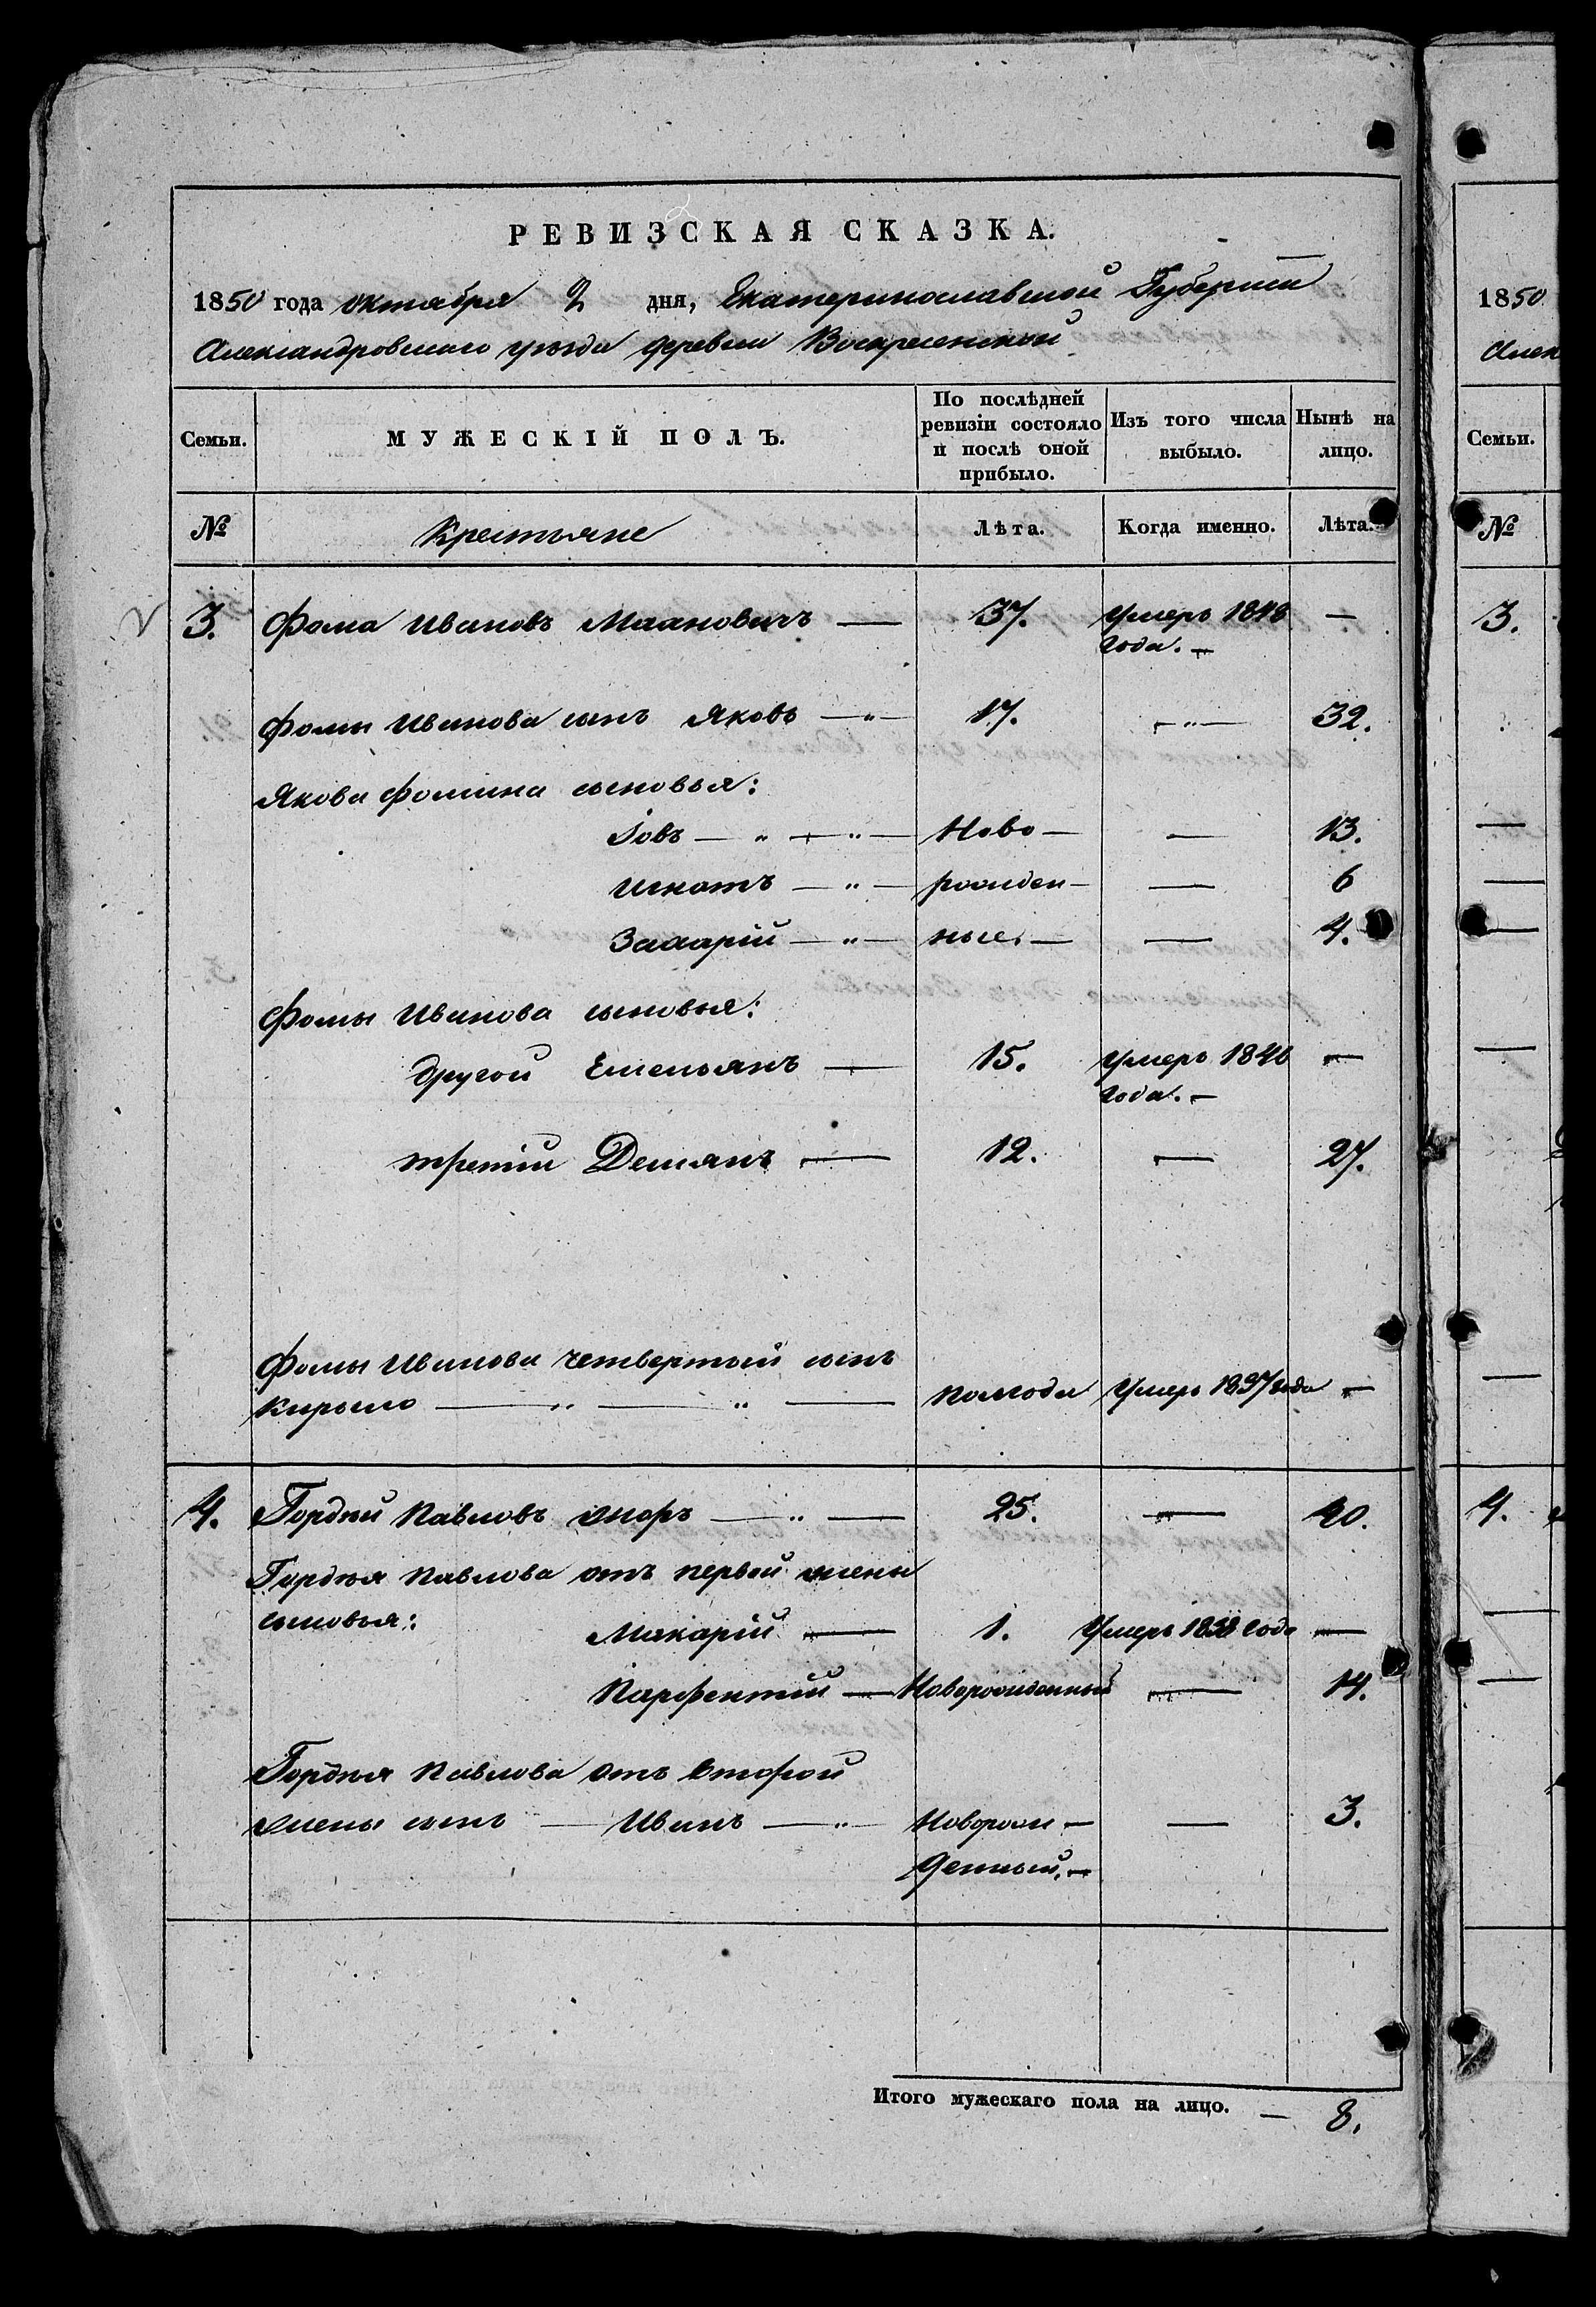 РЕВИЗСКАЯ СКАЗКА.
1850 года октября 2 дня, Екатеринославской Губернии
Александровскаго уезда деревни Воскресенской
Семьи.
МУЖЕСКІЙ ПОЛЪ.
По послѣдней ревизіи состояло и послѣ оной прибыло.
Изъ того числа выбыло.
Нынѣ на лицо.
№ Крестьяне Лѣта. Когда именно. Лѣта.
3. Фома Ивановъ — 37. Умеръ 1848 —
года. —
Фомы Иванова сынъ Яковъ — " — 17. — " — 32.
Якова Фомина сыновья:
Іовъ — " — " — Ново — — 13.
Игнатъ — " — рожден — — 6
Захарій — " — ные. — — 4.
Фомы Иванова сыновья:
другой Емельянъ — 15. Умеръ 1840 —
года. —
третій Демянъ — 12. — 27.
Фомы Иванова четвертый сынъ
Кирыло — " — " — полгода Умеръ 1837 года —
4. Гордѣй Павловъ — " — 25. — 40.
Гордѣя Павлова отъ первой жены
сыновья: Макарій — 1. Умеръ года —
Парфентій — Новорожденный — 14.
Гордѣя Павлова отъ второй
жены сынъ — Иванъ — " — Новорож — — 3.
денный. —
Итого мужескаго пола на лицо. — 8.
1850
Алек
Семьи.
№
3.
4.